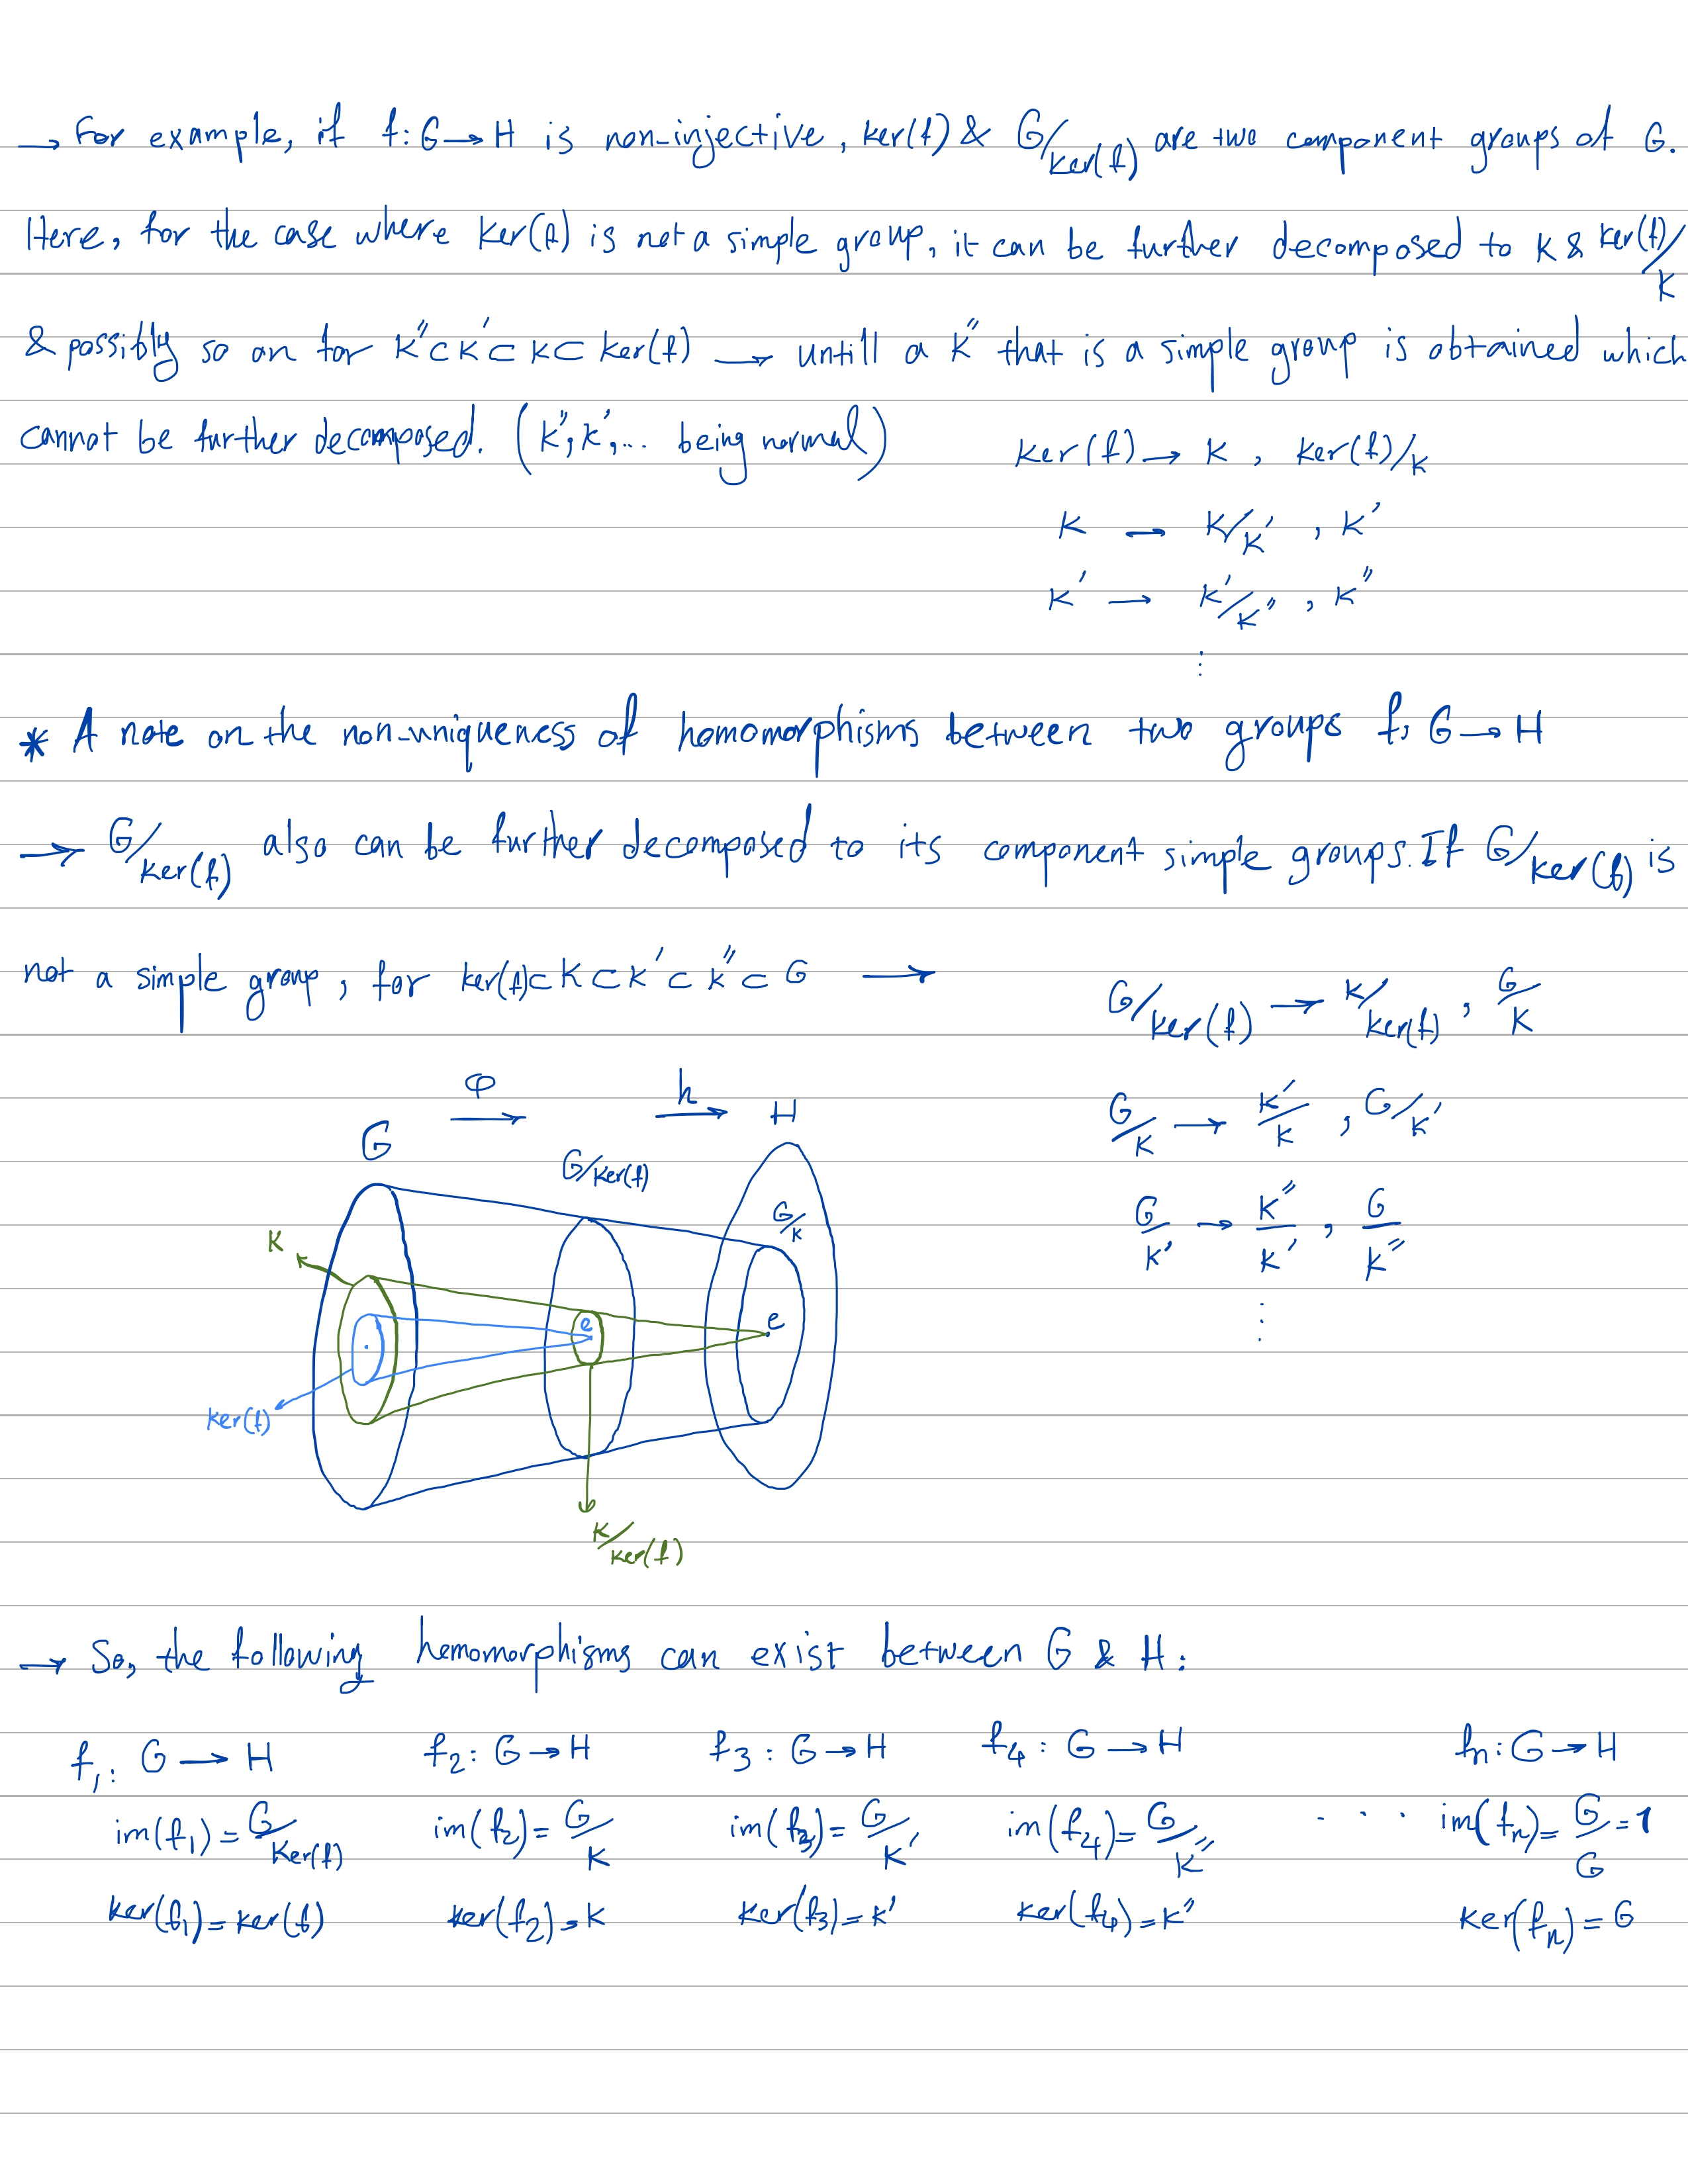 → For example, if f: G → H is non-injective, ker(f) & G/ker(f) are two component groups of G.
Here, for the case where Ker(f) is not a simple group, it can be further decomposed to K & ker(f)/K
& possibly so on for K'' ⊂ K' ⊂ K ⊂ Ker(f) → untill a K'' that is a simple group is obtained which
cannot be further decomposed. (K'', K', ... being normal)
Ker(f) → K , Ker(f)/K
K → K/K' , K'
K' → K'/K'' , K''
⋮
* A note on the non-uniqueness of homomorphisms between two groups f: G → H
→ G/ker(f) also can be further decomposed to its component simple groups. If G/ker(f) is
not a simple group, for ker(f) ⊂ K ⊂ K' ⊂ K'' ⊂ G →
G/ker(f) → K/ker(f) , G/K
G/K → K'/K , G/K'
G/K' → K''/K' , G/K''
⋮
φ → h →
G G/Ker(f) H
G/K
K
e e
ker(f)
K/ker(f)
→ So, the following hemomorphisms can exist between G & H:
f1: G → H f2: G → H f3: G → H f4: G → H fn: G → H
im(f1) = G/Ker(f) im(f2) = G/K im(f3) = G/K' im(f4) = G/K'' . . . im(fn) = G/G = 1
ker(f1) = ker(f) ker(f2) = K ker(f3) = K' ker(f4) = K'' ker(fn) = G